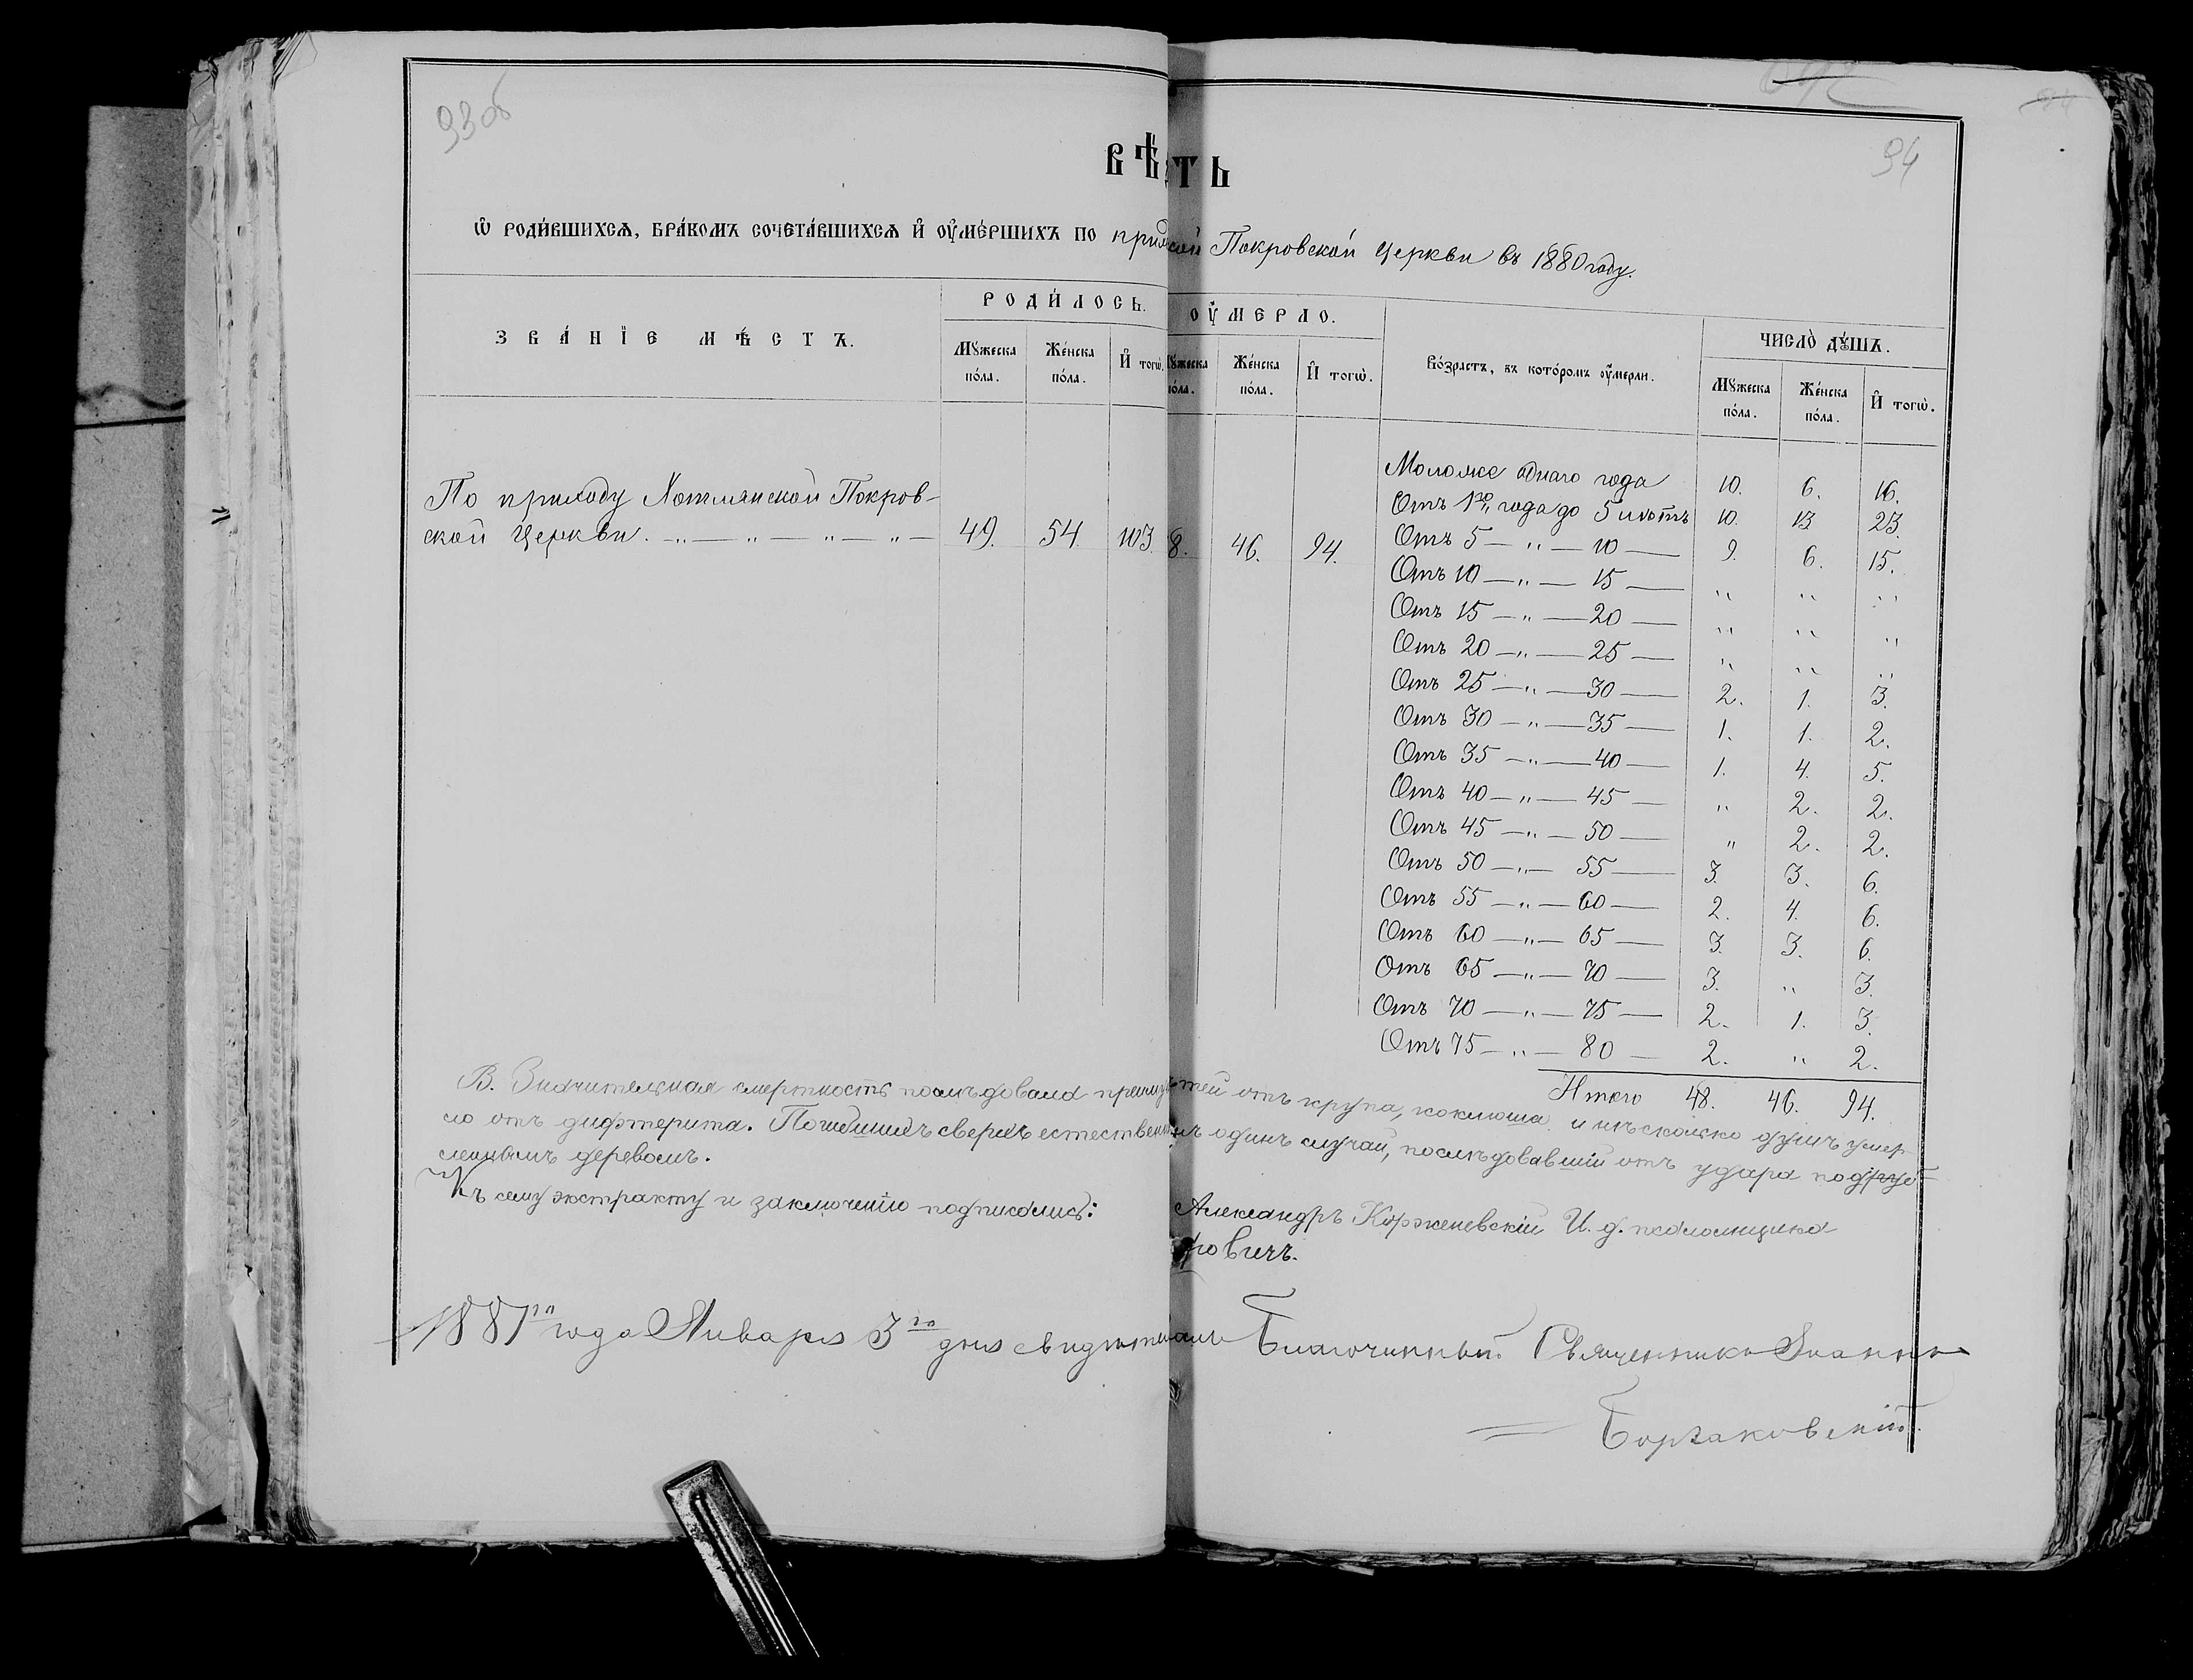 93 об
94
ВѢ
ТЬ
Ѡ РОДИ́ВШИХСѦ, БРА́КОМЪ СОЧЕТА́ВШИХСѦ И҆ ОУ҆МЕ́РШИХЪ ПО
Покровской церкви въ 1880 году.
ЗВА́НЇЕ МѢ́СТЪ.
РОДИ́ЛОСЬ.
Мꙋжеска по́ла.
Же́нска по́ла.
И҆ тогѡ̀.
ОУ҆МЕРЛО.
Же́нска по́ла.
И҆ тогѡ̀.
Во́зрастъ, въ кото́ромъ оу҆мерли.
ЧИСЛО̀ ДꙊ́ШЪ.
Мꙋжеска по́ла.
Же́нска по́ла.
И҆ тогѡ̀.
По приходу Хотлянской Покров-
ской Церкви. — „ — „ — „ — „ — 49. 54. 103. 8. 46. 94.
Моложе однаго года 10. 6. 16.
Отъ 1го года до 5 лѣтъ 10. 13 23.
Отъ 5 — „ — 10 — 9. 6. 15.
Отъ 10 — „ — 15 — „ „ „
Отъ 15 — „ — 20 — „ „ „
Отъ 20 — „ — 25 — „ „ „
Отъ 25 — „ — 30 — 2. 1. 3.
Отъ 30 — „ — 35 — 1. 1. 2.
Отъ 35 — „ — 40 — 1. 4. 5.
Отъ 40 — „ — 45 — „ 2. 2.
Отъ 45 — „ — 50 — „ 2. 2.
Отъ 50 — „ — 55 — 3. 3. 6.
Отъ 55 — „ — 60 — 2. 4. 6.
Отъ 60 — „ — 65 — 3. 3. 6.
Отъ 65 — „ — 70 — 3. „ 3.
Отъ 70 — „ — 75 — 2. 1. 3.
Отъ 75 — „ — 80 — 2. „ 2.
Итого 48. 46. 94.
В. Значительная смертность послѣдовала тей отъ крупа, коклюша и нѣсколько душъ умер-
ло отъ дифтерита. Погибшихъ сверхъ естествен одинъ случай, послѣдовавшій отъ удара подруб-
леннымъ деревомъ.
Къ сему экстракту и заключенію подписались: Александръ Корженевскій И. д. псаломщика
ровичъ.
1881го года Января 3го дня Благочинный Священникъ Іоаннъ
Боржаковскій.